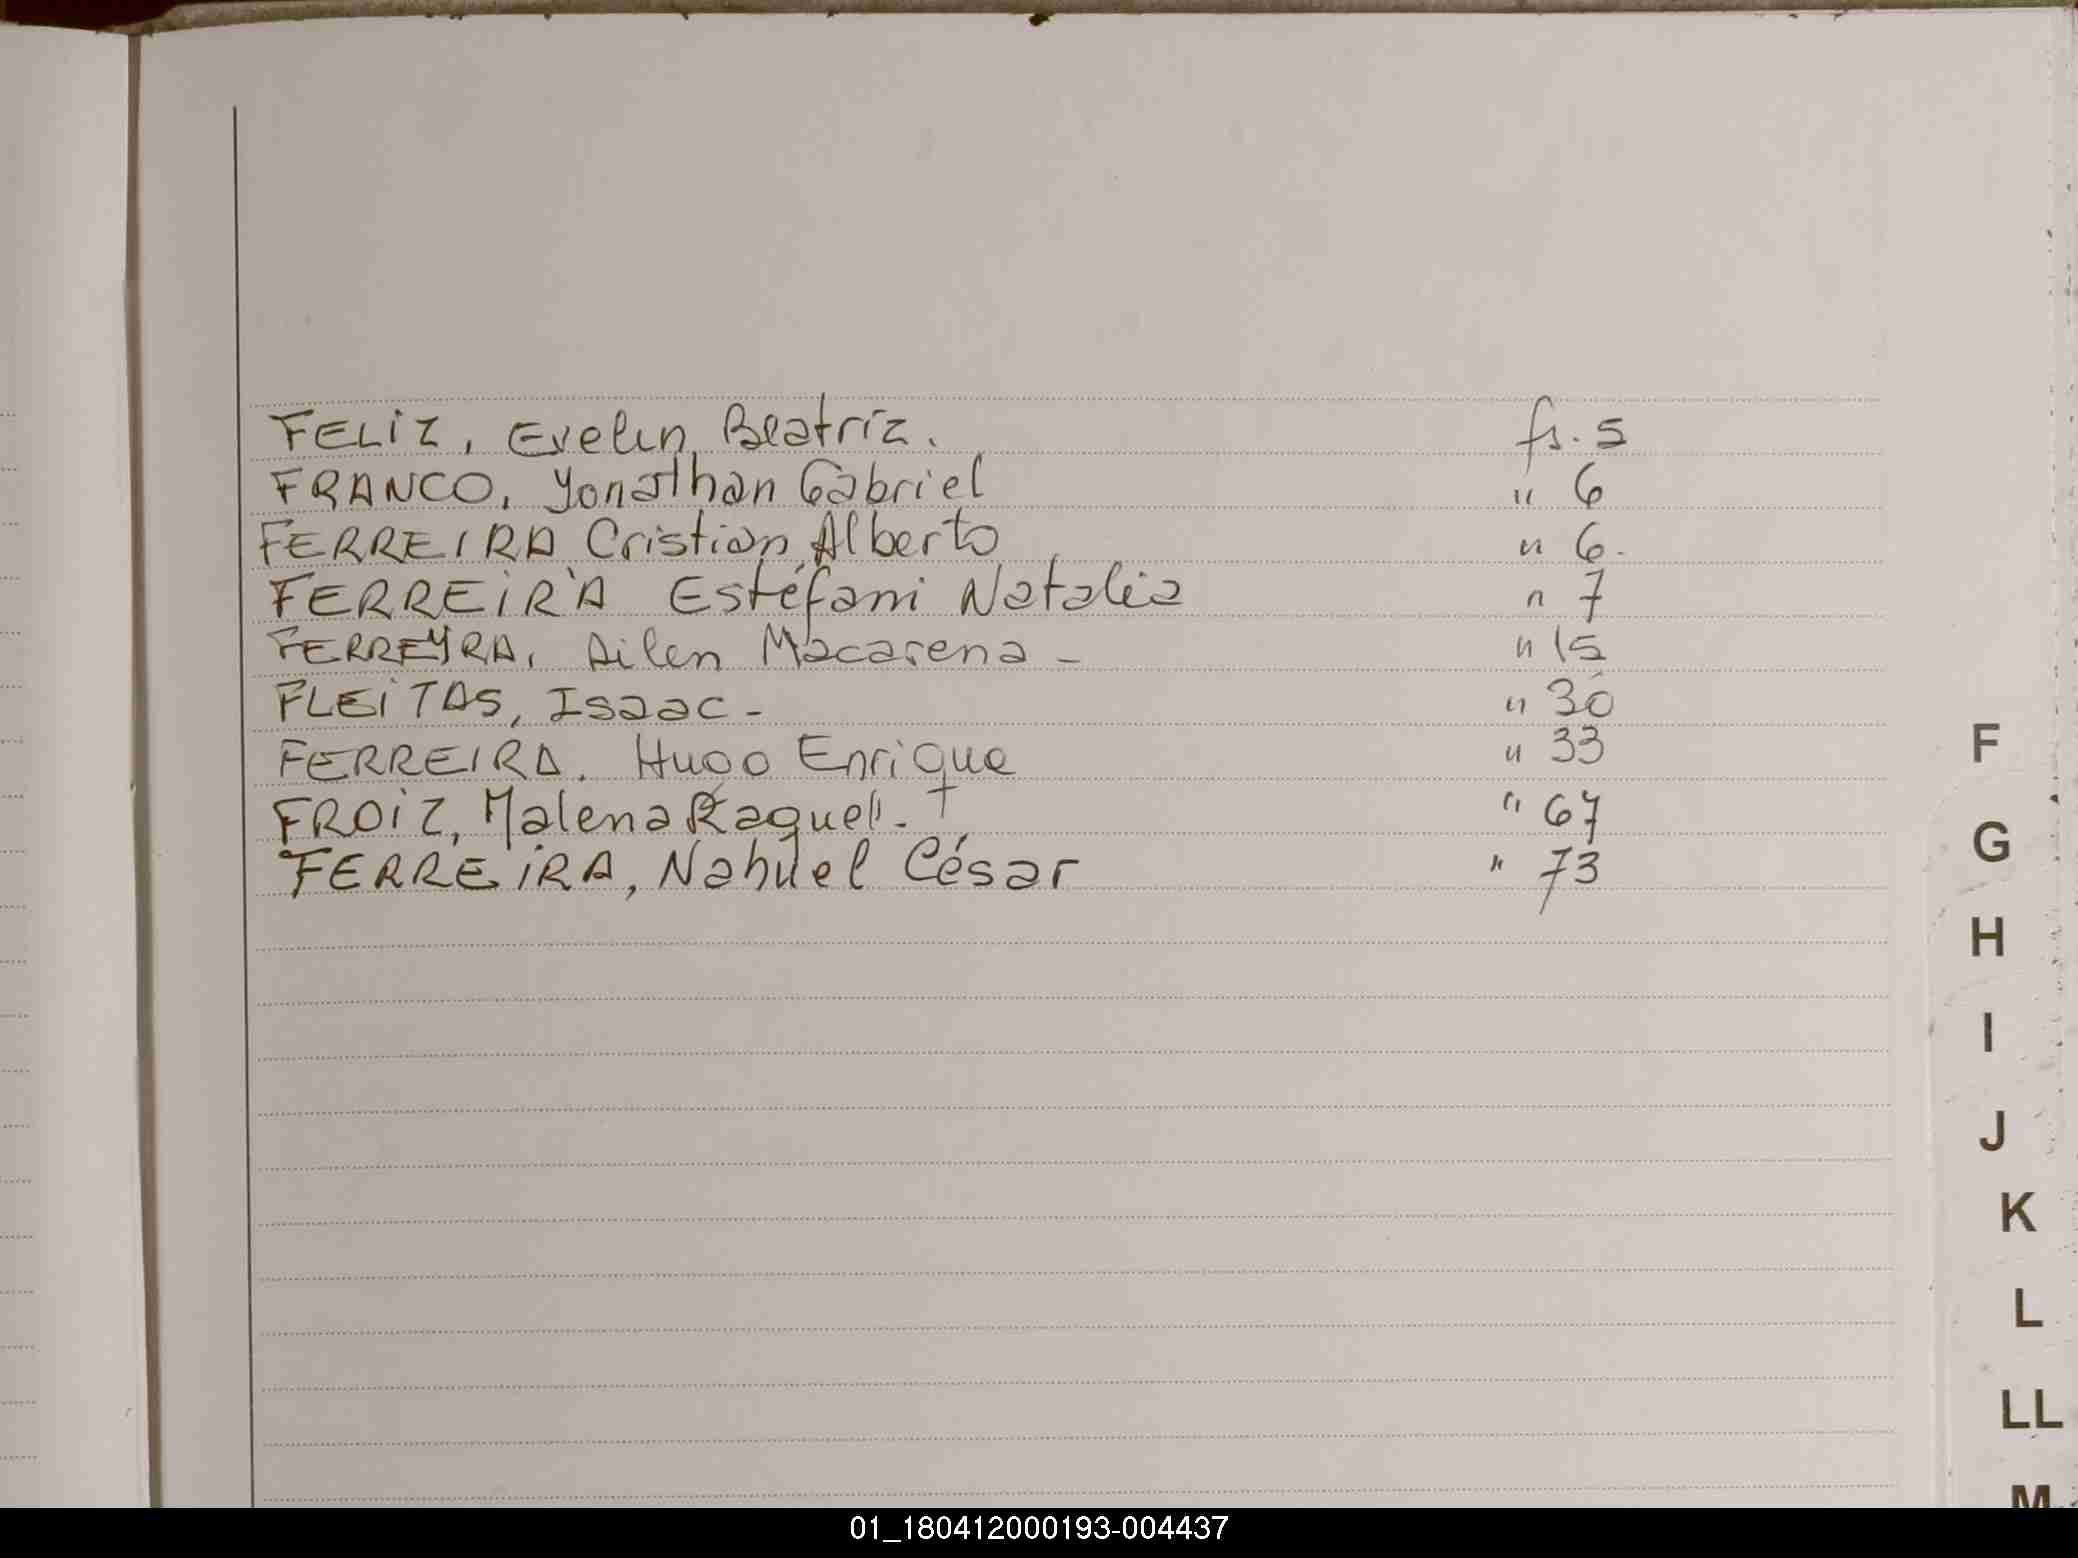 FELIZ, Evelin Beatriz. fs. 5
FRANCO, Yonathan Gabriel " 6
FERREIRA Cristian Alberto " 6.
FERREIRA Estéfani Natalia " 7
FERREYRA, Ailen Macarena - " 15
FLEITAS, Isaac - " 30
FERREIRA. Hugo Enrique " 33
FROIZ, Malena Raquel. - † " 67
FERREIRA, Nahuel César " 73
F
G
H
I
J
K
L
LL
M
01_180412000193-004437